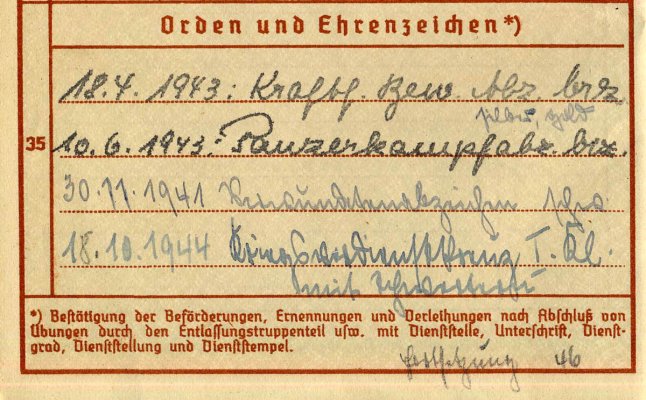 Orden und Ehrenzeichen*)
18.4. 1943: Kraftf. Bew. Abz. brz.
silber, gold
35 10.6. 1943: Panzerkampfabz. brz.
30.11.1941 Verwundetenabzeichen schw.
18.10.1944 Kriegsverdienstkreuz I. Kl.
mit Schwertern
*) Bestätigung der Beförderungen, Ernennungen und Verleihungen nach Abschluß von
Übungen durch den Entlassungstruppenteil usw. mit Dienststelle, Unterschrift, Dienst-
grad, Dienststellung und Dienststempel.
Fortsetzung 46